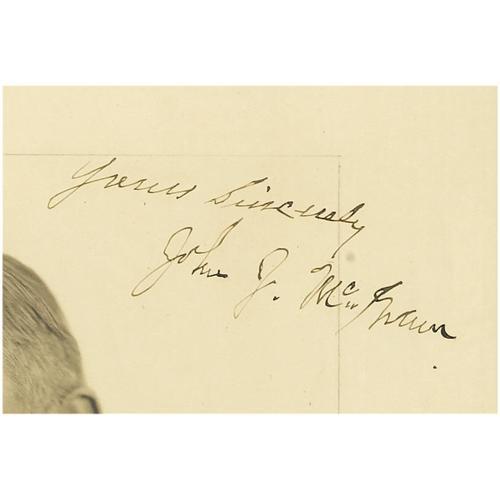 Yours Sincerely
John J. McGraw.